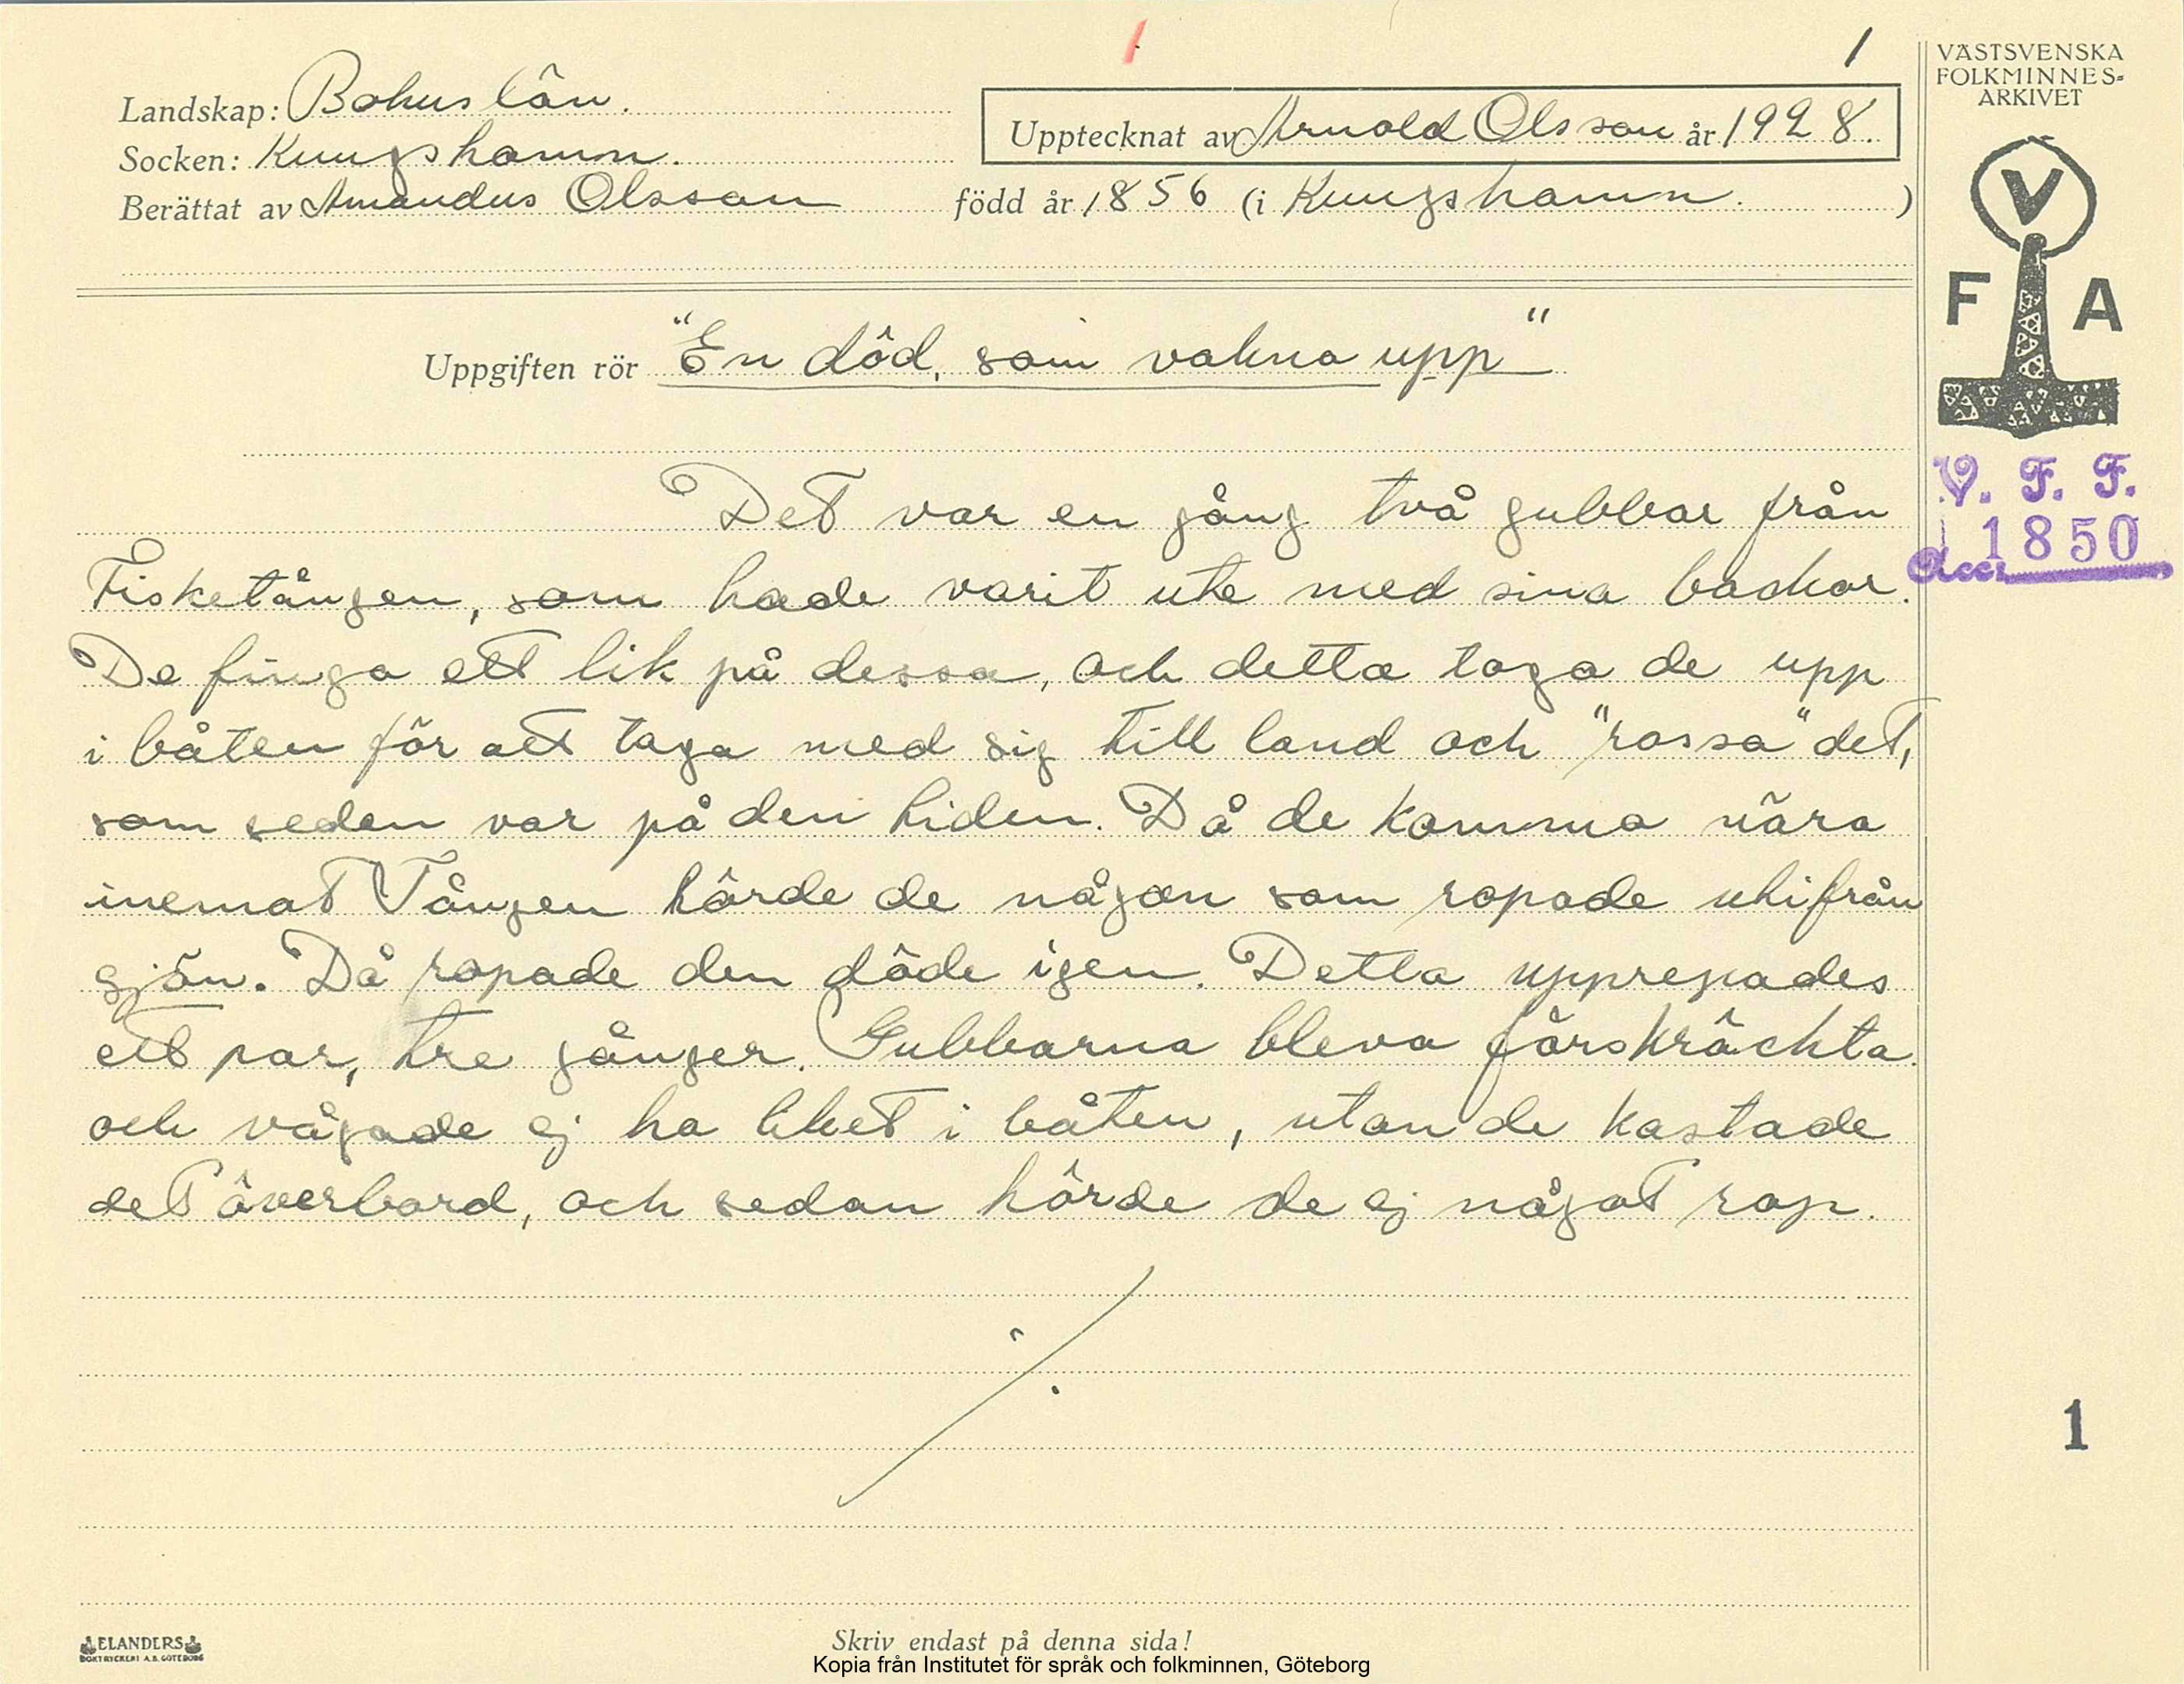 1
1
VÄSTSVENSKA
FOLKMINNES-
ARKIVET
Landskap: Bohuslän.
Upptecknat av Arnold Olsson år 1928.
Socken: Kungshamn.
Berättat av Amandus Olsson född år 1856 (i Kungshamn. )
V
F A
Uppgiften rör "En död, som vakna upp"
V. F. F.
Acc. 1850
Det var en gång två gubbar från
Fisketången, som hade varit ute med sina backor.
De finga ett lik på dessa, och detta toga de upp
i båten för att taga med sig till land och "rossa" det,
som seden var på den tiden. Då de kommo nära
inemot Tången hörde de någon som ropade utifrån
sjön. Då ropade den döde igen. Detta upprepades
ett par, tre gånger. Gubbarna bleva förskräckta
och vågade ej ha liket i båten, utan de kastade
det överbord, och sedan hörde de ej något rop.
1
ELANDERS
BOKTRYCKERI A.B. GÖTEBORG
Skriv endast på denna sida!
Kopia från Institutet för språk och folkminnen, Göteborg